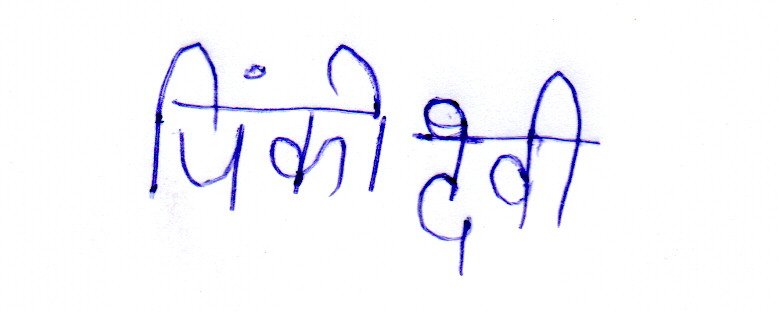 पिंकी देवी